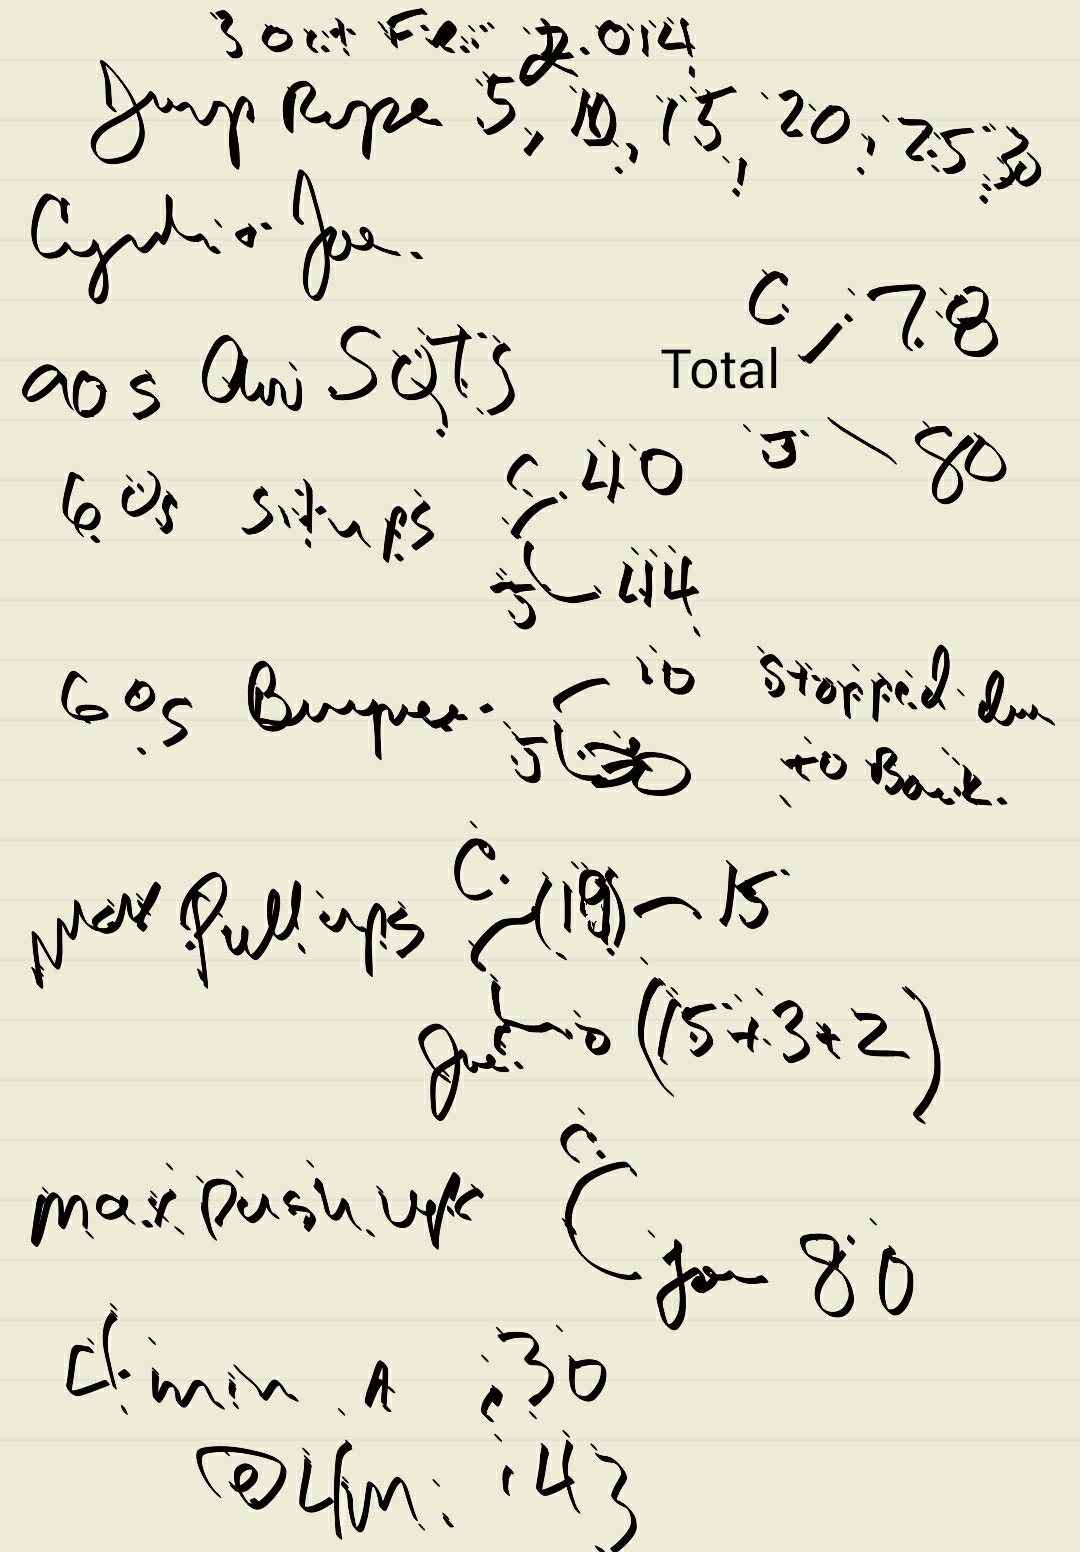 3 oct Fri 2.014
Jump Rope 5, 10, 15, 20, 25, 30
Joe.
C 78
90s SQTS
Total
J 80
60s Situps C 40
J 44
60s Burpees 10 stopped due
J 30 to Back.
max Pull ups C. (19) 15
Joe (15+3+2)
max push ups C.
Joe 80
min A 30
43